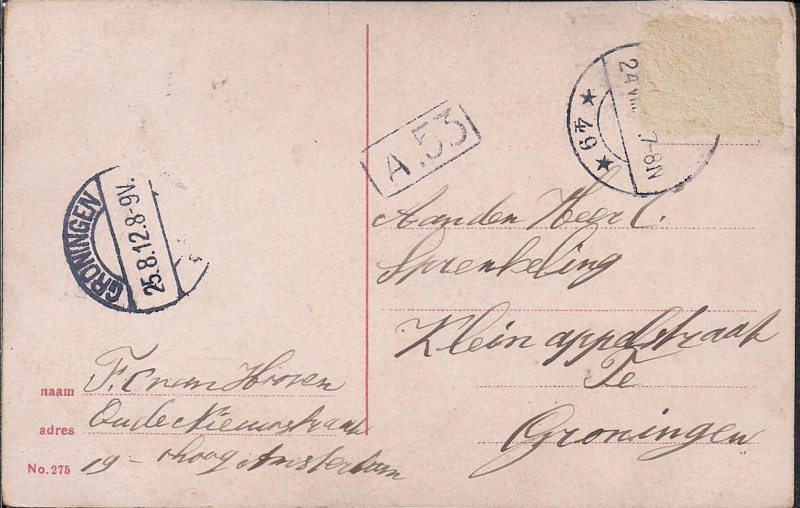 24 VIII
7-8N
64
A.53
GRONINGEN
25.8.12.8-9V.
Aan den Heer C.
Sprenkeling
Klein appelstraat
Te
Groningen
naam F. C van Hoven
adres Oude Nieuwstraat
No. 275 19 - Amsterdam